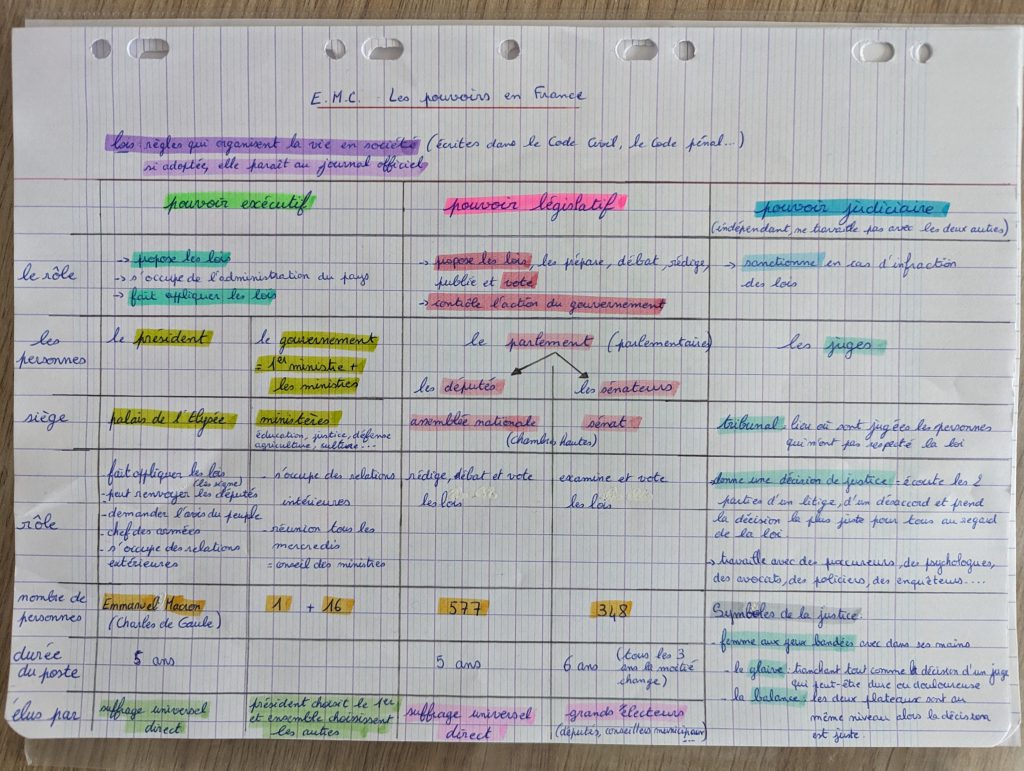 E.M.C. Les pouvoirs en France
lois : règles qui organisent la vie en société (écrites dans le Code Civil, le Code pénal...)
si adoptée, elle paraît au journal officiel
pouvoir exécutif
pouvoir législatif
pouvoir judiciaire
(indépendant, ne travaille pas avec les deux autres)
le rôle
→ propose les lois
→ s'occupe de l'administration du pays
→ fait appliquer les lois
→ propose les lois, les prépare, débat, rédige,
publie et vote
→ contrôle l'action du gouvernement
→ sanctionne en cas d'infraction
des lois
les
personnes
le président
le gouvernement
= 1er ministre +
les ministres
le parlement (parlementaire)
les députés
les sénateurs
les juges
siège
palais de l'Elysée
ministères
éducation, justice, défense
agriculture, culture...
assemblée nationale
sénat
(chambres hautes)
tribunal : lieu où sont jugées les personnes
qui n'ont pas respecté la loi
rôle
fait appliquer les lois
(les signe)
- peut renvoyer les députés
- demander l'avis du peuple
- chef des armées
- s'occupe des relations
extérieures
- s'occupe des relations
intérieures
- réunion tous les
mercredis
= conseil des ministres
rédige, débat et vote
les lois
examine et vote
les lois
→ donne une décision de justice = écoute les 2
parties d'un litige, d'un désaccord et prend
la décision la plus juste pour tous au regard
de la loi.
→ travaille avec des procureurs, des psychologues,
des avocats, des policiers, des enquêteurs....
nombre de
personnes
Emmanuel Macron
(Charles de Gaule)
1 + 16
577
348
Symboles de la justice :
- femme aux yeux bandés avec dans ses mains
- le glaive : tranchant tout comme la décision d'un juge
qui peut-être dure ou douloureuse
- la balance : les deux plateaux sont au
même niveau alors la décision
est juste.
durée
du poste
5 ans
5 ans
6 ans
(tous les 3
ans la moitié
change)
élus par
suffrage universel
direct
président choisit le 1er
et ensemble choisissent
les autres
suffrage universel
direct
grands électeurs
(députés, conseillers municipaux)